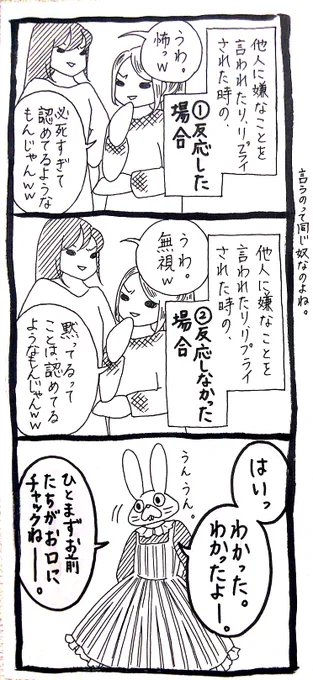 言うのって同じ奴なのよね。
他人に嫌なことを
言われたり、リプライ
された時の、
①反応した
場合
うわ。
怖っw
必死すぎて
認めてるような
もんじゃんww
他人に嫌なことを
言われたり、リプライ
された時の、
②反応しなかった
場合
うわ。
無視w
黙ってるって
ことは、認めてる
ようなもんじゃんww
はいっ
わかった。
わかったよー。
うんうん。
ひとまずお前
たちがお口に
チャックねー。